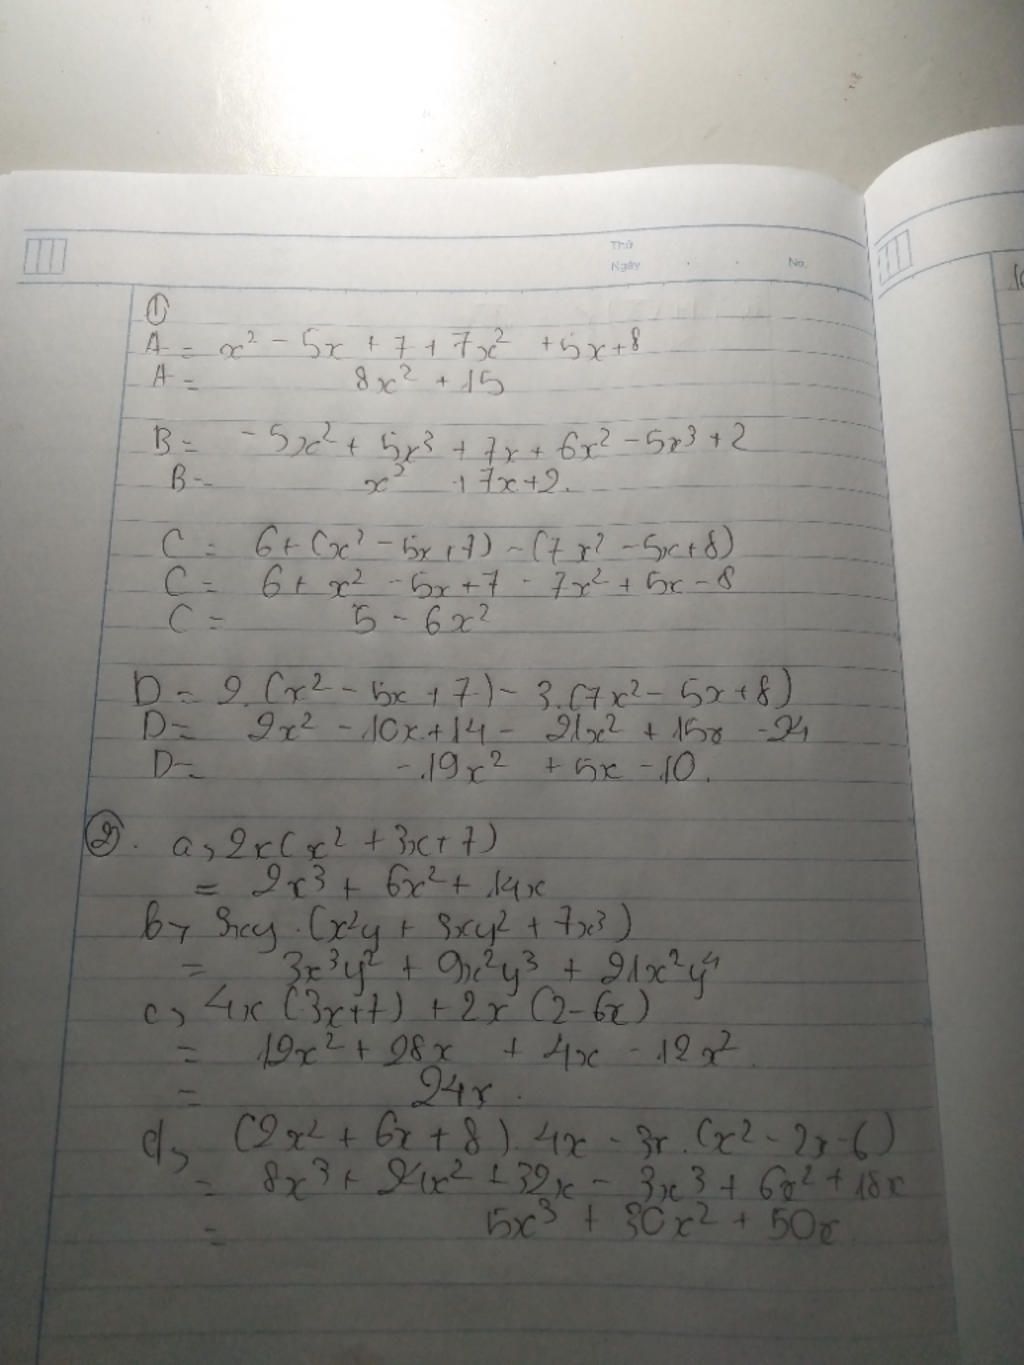 Thứ
Ngày . . No.
①
A = x² - 5x + 7 + 7x² + 5x + 8
A = 8x² + 15
B = -5x² + 5x³ + 7x + 6x² - 5x³ + 2
B = x³ + 7x + 2.
C = 6 + (x² - 5x + 7) - (7x² - 5x + 8)
C = 6 + x² - 5x + 7 - 7x² + 5x - 8
C = 5 - 6x²
D = 2.(x² - 5x + 7) - 3.(7x² - 5x + 8)
D = 2x² - 10x + 14 - 21x² + 15x - 24
D = -19x² + 5x - 10.
②. a, 2x(x² + 3x + 7)
= 2x³ + 6x² + 14x
b, 3xy.(x²y + 3xy² + 7x³)
= 3x³y² + 9x²y³ + 21x²y⁴
c, 4x(3x+7) + 2x(2-6x)
= 12x² + 28x + 4x - 12x².
= 24x.
d, (2x² + 6x + 8).4x - 3x.(x² - 2x - 6)
= 8x³ + 24x² + 32x - 3x³ + 6x² + 18x
= 5x³ + 30x² + 50x